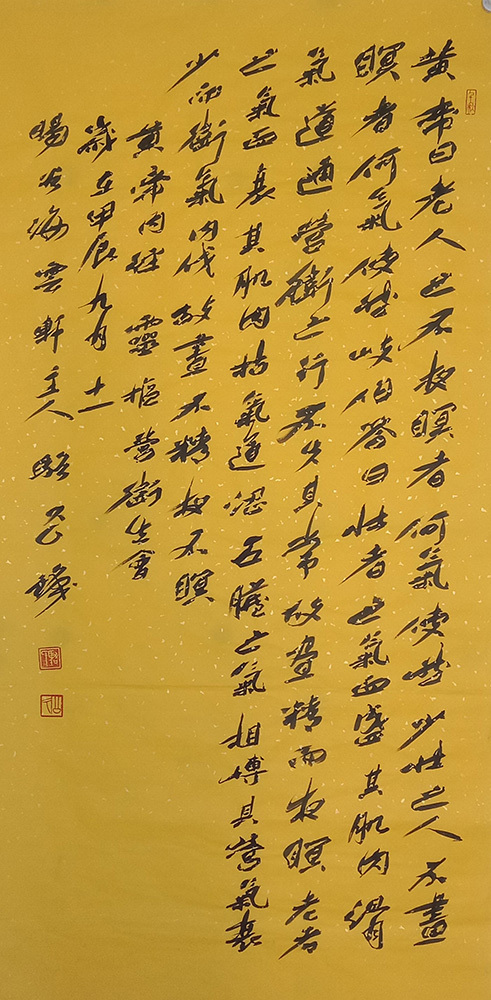 黄帝曰老人之不夜瞑者何氣使然少壯之人不晝
瞑者何氣使然岐伯答曰壯者之氣血盛其肌肉滑
氣道通營衛之行不失其常故晝精而夜瞑老者
之氣血衰其肌肉枯氣道澀五臟之氣相搏其營氣衰
少而衛氣內伐故晝不精夜不瞑
黄帝內經靈樞營衛生會
歲在甲辰九月十一
陽谷海雲軒主人